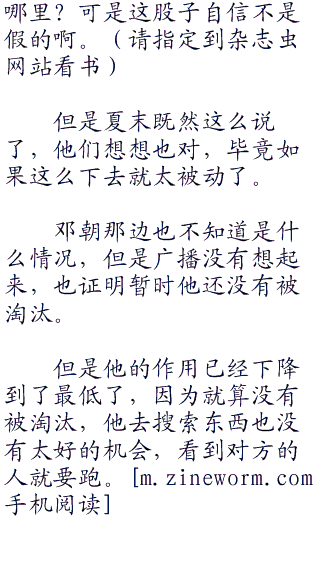 哪里？可是这股子自信不是
假的啊。（请指定到杂志虫
网站看书）
但是夏末既然这么说
了，他们想想也对，毕竟如
果这么下去就太被动了。
邓朝那边也不知道是什
么情况，但是广播没有想起
来，也证明暂时他还没有被
淘汰。
但是他的作用已经下降
到了最低了，因为就算没有
被淘汰，他去搜索东西也没
有太好的机会，看到对方的
人就要跑。[m.zineworm.com
手机阅读]